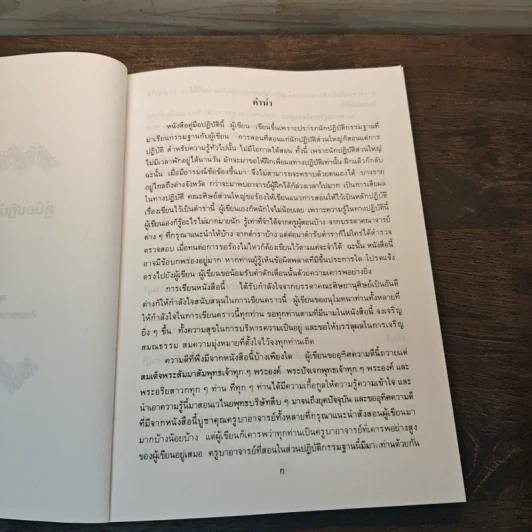 คำนำ
หนังสือคู่มือปฏิบัตินี้ ผู้เขียน เขียนขึ้นเพราะปรารภนักปฏิบัติกรรมฐานที่
มาเรียนกรรมฐานกับผู้เขียน การสอนที่สอนแก่นักปฏิบัติส่วนใหญ่ก็สอนแต่การ
ปฏิบัติ สำหรับความรู้ทั่วไปนั้น ไม่มีโอกาสได้สอน ทั้งนี้ เพราะนักปฏิบัติส่วนใหญ่
ไม่มีเวลาพักอยู่ได้นานวัน มักจะมาขอให้ฝึกเพื่อผลทางปฏิบัติเท่านั้น ฝึกแล้วก็กลับ
ฉะนั้น เมื่อมีอารมณ์ข้อข้องขึ้นมา จึงไม่สามารถจะทราบด้วยตนเองได้ บางราย
อยู่ไกลถึงต่างจังหวัด กว่าจะมาพบอาจารย์ผู้ฝึกได้ก็ล่วงเวลาไปมาก เป็นการเสียผล
ในทางปฏิบัติ คณะศิษย์ส่วนใหญ่ขอร้องให้เขียนแนวการสอนให้ไว้เป็นหลักปฏิบัติ
เรื่องเขียนไว้เป็นตำรานี้ ผู้เขียนเองก็หนักใจไม่น้อยเลย เพราะความรู้ในทางปฏิบัตินี้
ผู้เขียนเองก็รู้อะไรไม่มากมายนัก รู้เท่าที่จำได้จากครูผู้สอนบ้าง จากบรรดาคณาจารย์
ต่าง ๆ ที่กรุณาแนะนำให้บ้าง จากตำราบ้าง แต่ต่อมาตำรับตำราก็ไม่ใคร่ได้ตำรวจ
ตรวจสอบ เมื่อทนต่อการขอร้องไม่ไหวก็ต้องเขียนไว้ตามแต่จะจำได้ ฉะนั้น หนังสือนี้
อาจมีข้อบกพร่องอยู่มาก หากท่านผู้รู้เห็นข้อผิดพลาดที่มีขึ้นประการใด โปรดแจ้ง
ตรงไปยังผู้เขียน ผู้เขียนขอน้อมรับคำตักเตือนนั้นด้วยความเคารพอย่างยิ่ง
การเขียนหนังสือนี้ ได้รับกำลังใจจากบรรดาคณะศิษยานุศิษย์เป็นอันดี
ต่างก็ให้กำลังใจสนับสนุนในการเขียนคราวนี้ ผู้เขียนขออนุโมทนาท่านทั้งหลายที่
ให้กำลังใจในการเขียนคราวนี้ทุกท่าน ขอทุกท่านตามที่มีนามในหนังสือนี้ จงเจริญ
ยิ่ง ๆ ขึ้น ทั้งความสุขในการบริหารความเป็นอยู่ และขอให้บรรลุผลในการเจริญ
สมณธรรม สมความมุ่งหมายที่ตั้งใจไว้จงทุกท่านเถิด
ความดีที่พึงมีจากหนังสือนี้บ้างเพียงใด ผู้เขียนขออุทิศความดีนี้ถวายแด่
สมเด็จพระสัมมาสัมพุทธเจ้าทุก ๆ พระองค์ พระปัจเจกพุทธเจ้าทุก ๆ พระองค์ และ
พระอริยสาวกทุก ๆ ท่าน ที่ทุก ๆ ท่านได้มีความเกื้อกูลให้ความรู้ความเข้าใจ และ
นำเอาความรู้นี้มาสอนเวไนยพุทธบริษัทสืบ ๆ มาจนถึงยุคปัจจุบัน และขออุทิศความดี
ที่มีจากหนังสือนี้บูชาคุณครูบาอาจารย์ทั้งหลายที่กรุณาแนะนำสั่งสอนผู้เขียนมา
มากบ้างน้อยบ้าง แต่ผู้เขียนก็เคารพว่าทุกท่านเป็นครูบาอาจารย์ที่เคารพอย่างสูง
ของผู้เขียนอยู่เสมอ ครูบาอาจารย์ที่สอนในส่วนปฏิบัติกรรมฐานนี้มีมา ท่านด้วยกัน
ก